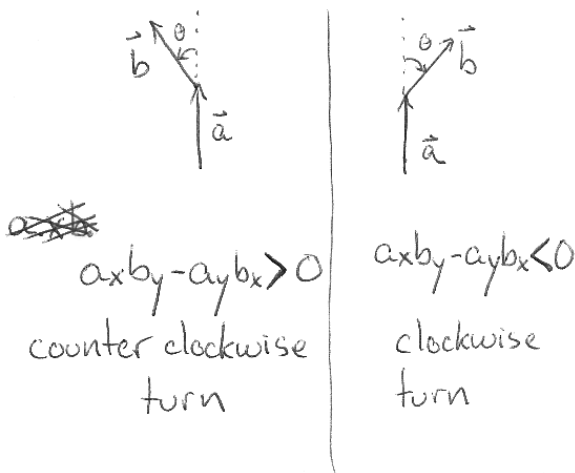 θ
b⃗
a⃗
axby-aybx>0
counter clockwise
turn
θ
b⃗
a⃗
axby-aybx<0
clockwise
turn